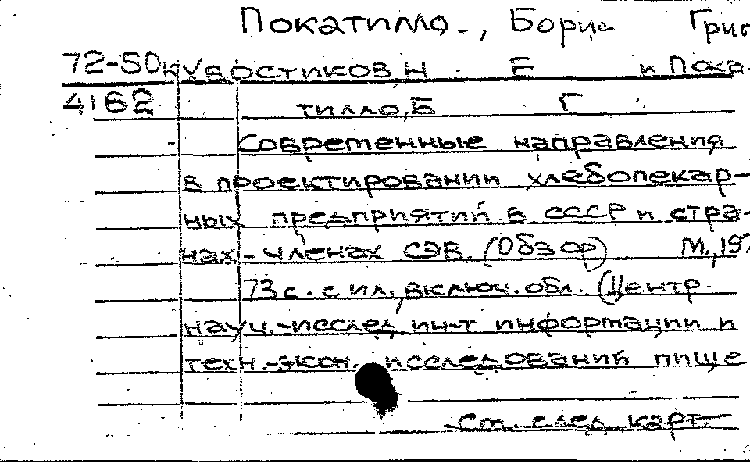 Покатилло., Борис Григ
72-50 Кувостиков Н Е и Пока-
4162 тилло, Б Г
Современные направления
в проектировании хлебопекар-
ных предприятий в СССР и стра-
нах-членах СЭВ. (Обзор) М., 197
73 с. с ил., включ. обл. (Центр
науч.-исслед ин-т информации и
техн.-экон. исследований пище
См. след. карт.